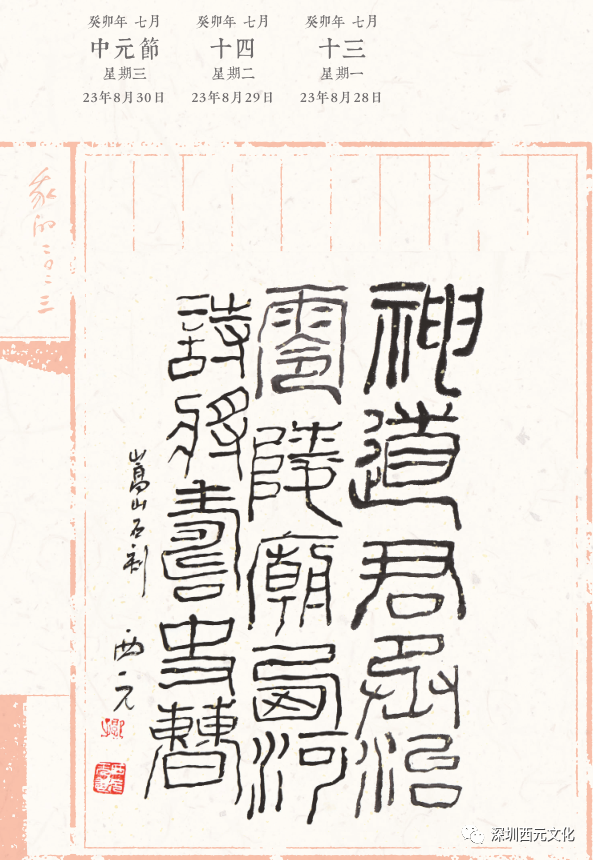 癸卯年 七月
中元節
星期三
23年8月30日
癸卯年 七月
十四
星期二
23年8月29日
癸卯年 七月
十三
星期一
23年8月28日
二〇二三
神道君治
零陵廟河
詩將史曹
嵩山石刻
西元
深圳西元文化